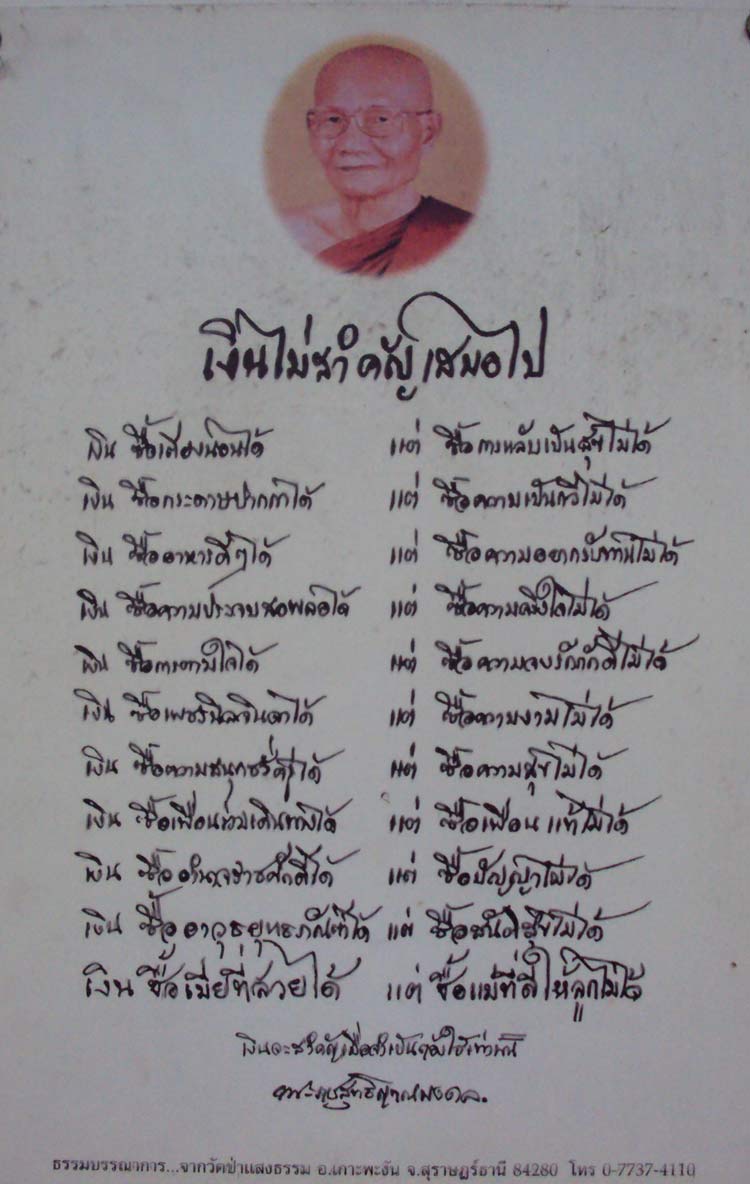 เงินไม่สำคัญเสมอไป
เงิน ซื้อเตียงนอนได้ แต่ ซื้อการหลับเป็นสุขไม่ได้
เงิน ซื้อกระดาษปากกาได้ แต่ ซื้อความเป็นกวีไม่ได้
เงิน ซื้ออาหารดีๆได้ แต่ ซื้อความอยากรับทานไม่ได้
เงิน ซื้อความประจบสอพลอได้ แต่ ซื้อความจริงใจไม่ได้
เงิน ซื้อการตามใจได้ แต่ ซื้อความจงรักภักดีไม่ได้
เงิน ซื้อเพชรนิลจินดาได้ แต่ ซื้อความงามไม่ได้
เงิน ซื้อความสนุกชั่วครู่ได้ แต่ ซื้อความสุขไม่ได้
เงิน ซื้อเพื่อนร่วมเดินทางได้ แต่ ซื้อเพื่อนแท้ไม่ได้
เงิน ซื้ออำนาจราชศักดิ์ได้ แต่ ซื้อปัญญาไม่ได้
เงิน ซื้ออาวุธยุทธภัณฑ์ได้ แต่ ซื้อสันติสุขไม่ได้
เงิน ซื้อเมียที่สวยได้ แต่ ซื้อแม่ที่ดีให้ลูกไม่ได้
เงินจะสำคัญเมื่อจำเป็นต้องใช้เท่านั้น
พระราชสุทธิญาณมงคล.
ธรรมบรรณาการ...จากวัดป่าแสงธรรม อ.เกาะพะงัน จ.สุราษฎร์ธานี 84280 โทร 0-7737-4110